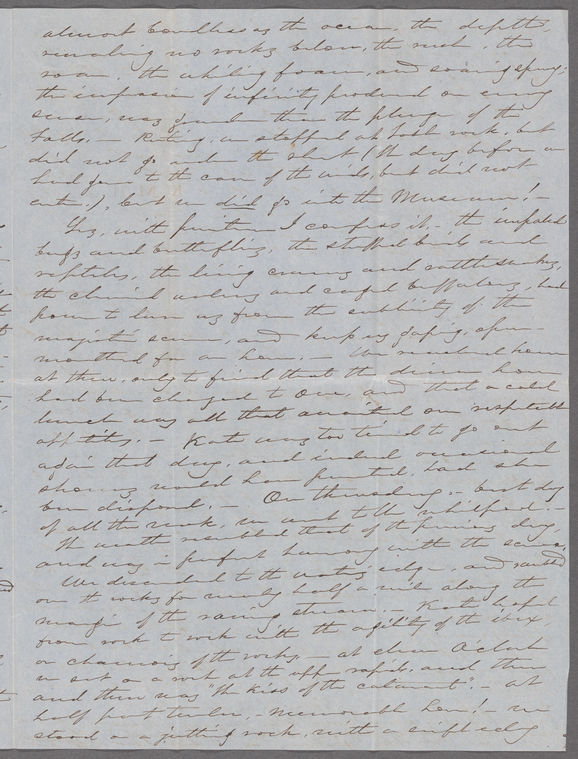 almost boundless as the ocean, the depths
revealing no rocks below, the rush, the
roar, the whirling foam, and soaring spray;
the impression of infinity produced on every
sense, was grander than the plunge of the
Falls. — Riding, we stopped at table rock, but
did not go under the sheet (the day before we
had gone to the cave of the winds, but did not
enter), but we did go into the Museum! —
Yes, with contrition I confess it — the
bugs and butterflies, the stuffed birds and
reptiles, the living and rattlesnakes,
the and caged buffaloes, had
power to lure us from the sublimity of the
majestic scene, and keep us gaping, open-
mouthed for an hour. — We reached home
at three, only to find that the dinner hour
had been changed to One, and that a cold
lunch was all that awaited our
appetites. — Kate was too tired to go out
again that day, and indeed occasional
showers would have prevented, had she
been disposed. — On Thursday — best day
of all the week, we went to the whirlpool. —
The weather resembled that of the previous day,
and was in perfect harmony with the scene.
We descended to the water's edge, and
over the rocks for nearly half a mile along the
margin of the raving stream. — Kate leaped
from rock to rock with the agility of the ibex,
or chamois of the rocks — at eleven O'clock
we sat on a rock at the upper rapids, and then
and there was "the kiss of the cataract". — at
half past twelve, — Memorable hour! — we
stood on a jutting rock, with a swift eddy